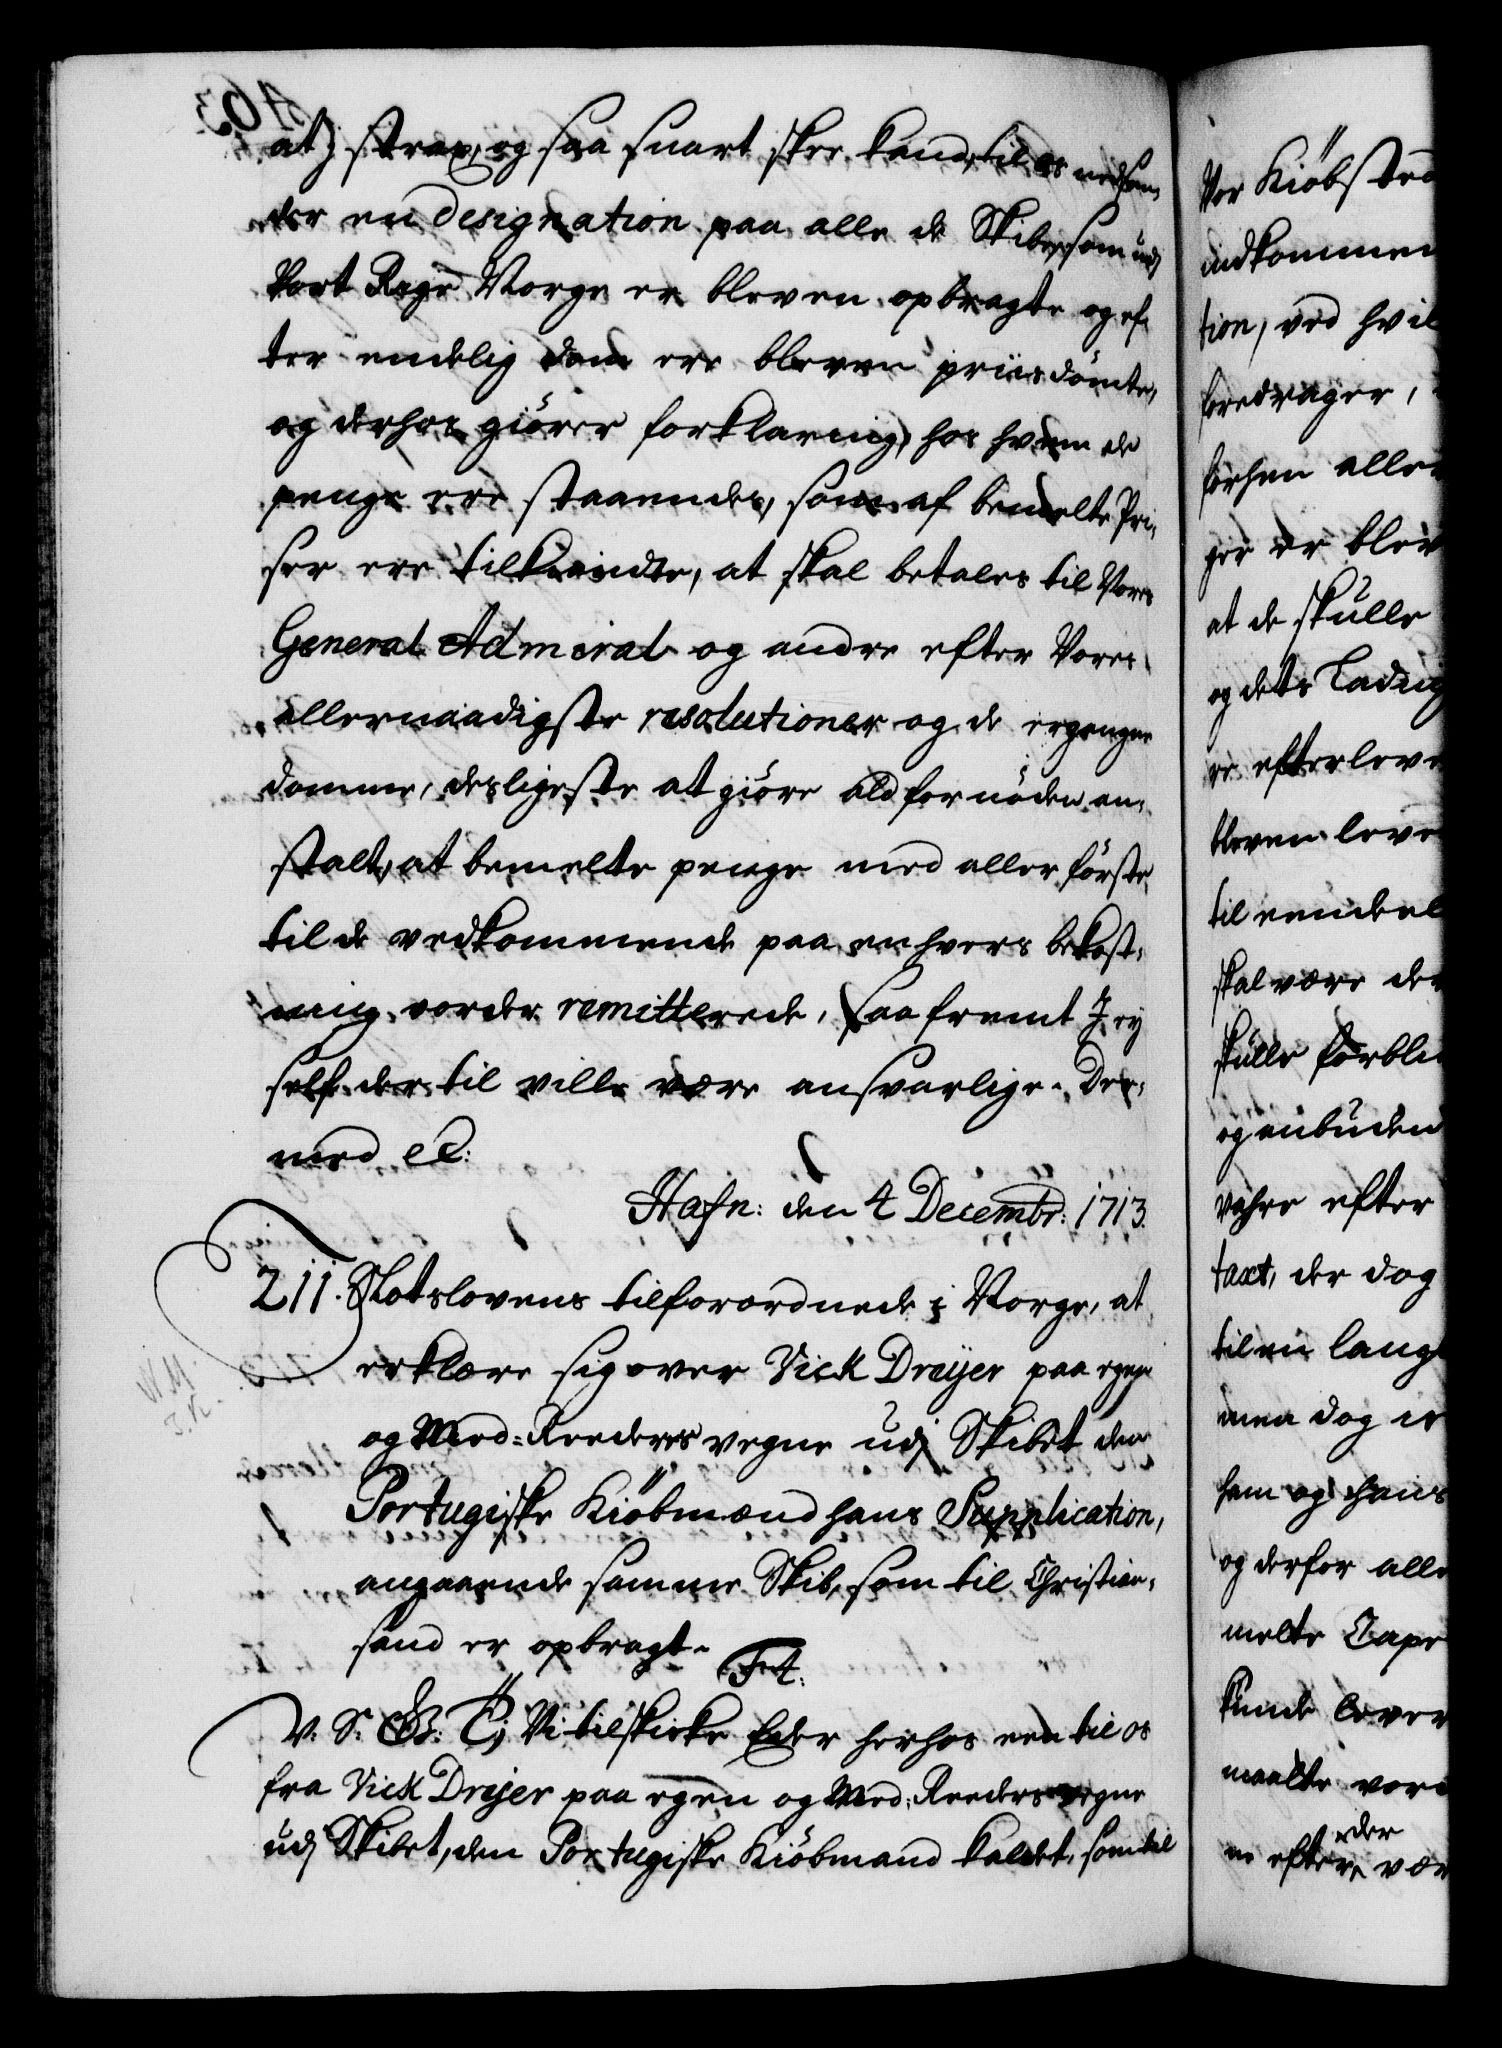 at I strax, og saa snart skee kand, til os nedsen-
der en Designation paa alle de Skibe, som udj
Vort Rige Norge er bleven opbragte og ef-
ter endelig dom ere bleven priisdömte,
og derhos giörer forklaring, hos hvem de
penge ere staaendes, som af bemelte Pri-
ser ere tilkiendte, at skal betales til Vores
General Admiral og andre efter Vores
allernaadigste resolutioner og de ergangne
domme, desligeste at giöre all fornöden an-
stalt, at bemelte penge med aller förste
til de vedkommende paa enhvers bekost-
ning vorder remitterede, saafremt I ej
self der til ville være ansvarlige. Der-
med etc:
Hafn: den 4 Decembr: 1713.
211. Slotslovens tilforordnede i Norge, at
erklære sig over Vick Dreyer paa egne
og Med-Reederes vegne udj Skibet den
Portugiske Kiöbmænd hans Supplication,
angaaende samme Skib, som til Christian-
sand er opbragt.
F4.
V. S: G: T; Vi tilskicke Eder herhos een til os
fra Vick Dreyer paa egen og Med-Reeders vegne
udj Skibet, den Portugiske Kiöbmand kaldet, som til
Vor Kiöbsted
indkommen
tion, ved hvil
foredrager,
forhen alle
ger er blev
at de skulle
og dets Ladnig
re efterleve
bleven leve
til eendeel
skal være de
skulle forbli
og anbuden
vahre efter
taxt, der dog
til en lang
men dog
ham og hans
og derfor alle
melte Cape
kunde lever
maatte vor
der
efter vær